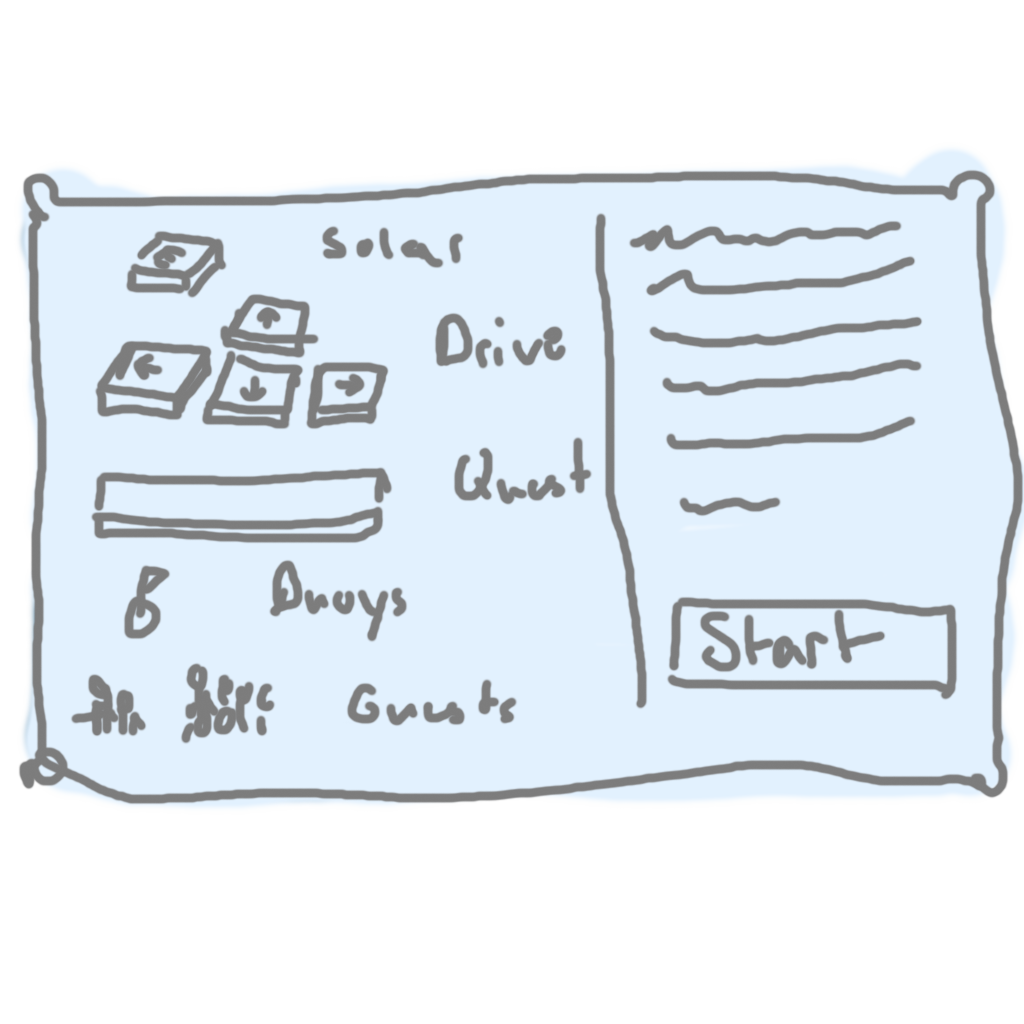 E
Solar
Drive
Quest
Buoys
Guests
Start